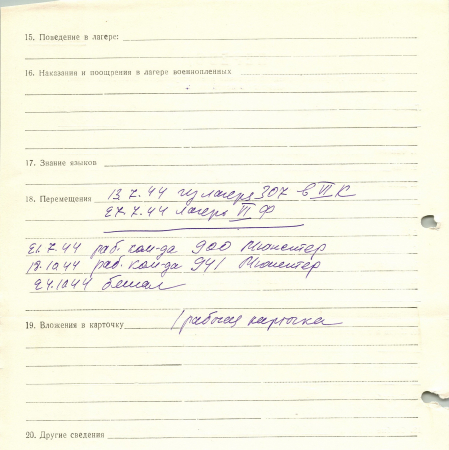 15. Поведение в лагере:
16. Наказания и поощрения в лагере военнопленных
17. Знание языков
18. Перемещения 13.7.44 из лагеря 307 в VI К
27.7.44 лагерь VI Ф
21.7.44 раб. ком-да 900 Мюнстер
12.10.44 раб. ком-да 941 Мюнстер
24.10.44 бежал
19. Вложения в карточку 1 рабочая карточка
20. Другие сведения